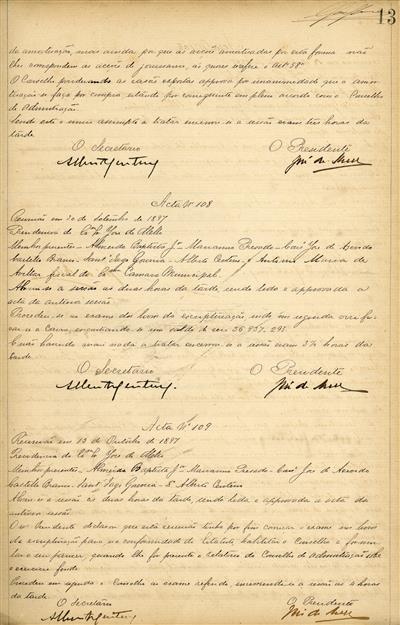 13
de amortisação, mais ainda, por que as acções amortisadas por esta forma não
lhes correspondem as acções de , ás quaes se refere o artº 58º
O Conselho ponderando as rasões expostas approva por unanimidade que a amor-
tisação se faça por compra, estando por conseguinte em pleno accordo com o Conselho
de Administração.
Sendo este o unico assumpto a tratar encerrou-se a sessão eram tres horas da
tarde.
O Secretario O Presidente
José de
Acta Nº 108
Reunião em 20 de Setembro de 1897
Presidencia do José de
Membros presentes - Almeida Baptista Jr Marianno Presado - José de Azevedo
Castello Branco, Gouveia - Alberto Centeno e Antonio Maria de
Avellar fiscal da Camara Municipal.
Abriu-se a sessão as duas horas da tarde, sendo lida e approvada a
acta da anterior sessão.
Procedeu-se ao exame dos livros da escripturação, indo em seguida verifi-
car-se a Caixa, encontrando-se um saldo de reis 36.837.295
E não havendo mais nada a tratar encerrou-se a sessão eram 3½ horas da
tarde.
O Secretario O Presidente
José de
Acta Nº 109
Reunião em 10 de Outubro de 1897
Presidencia do José de
Membros presentes - Almeida Baptista Jr Marianno Presado - José de Azevedo
Castello Branco, Gouveia - Alberto Centeno
Abriu-se a sessão ás duas horas da tarde, sendo lida e approvada a acta da
anterior sessão.
O Snr Presidente declarou que esta reunião tinha por fim começar o exame aos livros
da escripturação para na conformidade do Estatuto habilitar o Conselho a formu-
lar o seu parecer, quando lhe for presente o relatorio do Conselho de Administração sobre
o exercicio findo.
Procedeu em seguida o Conselho ao exame referido, encerrando-se a sessão ás 4 horas
da tarde.
O Secretario O Presidente
José de